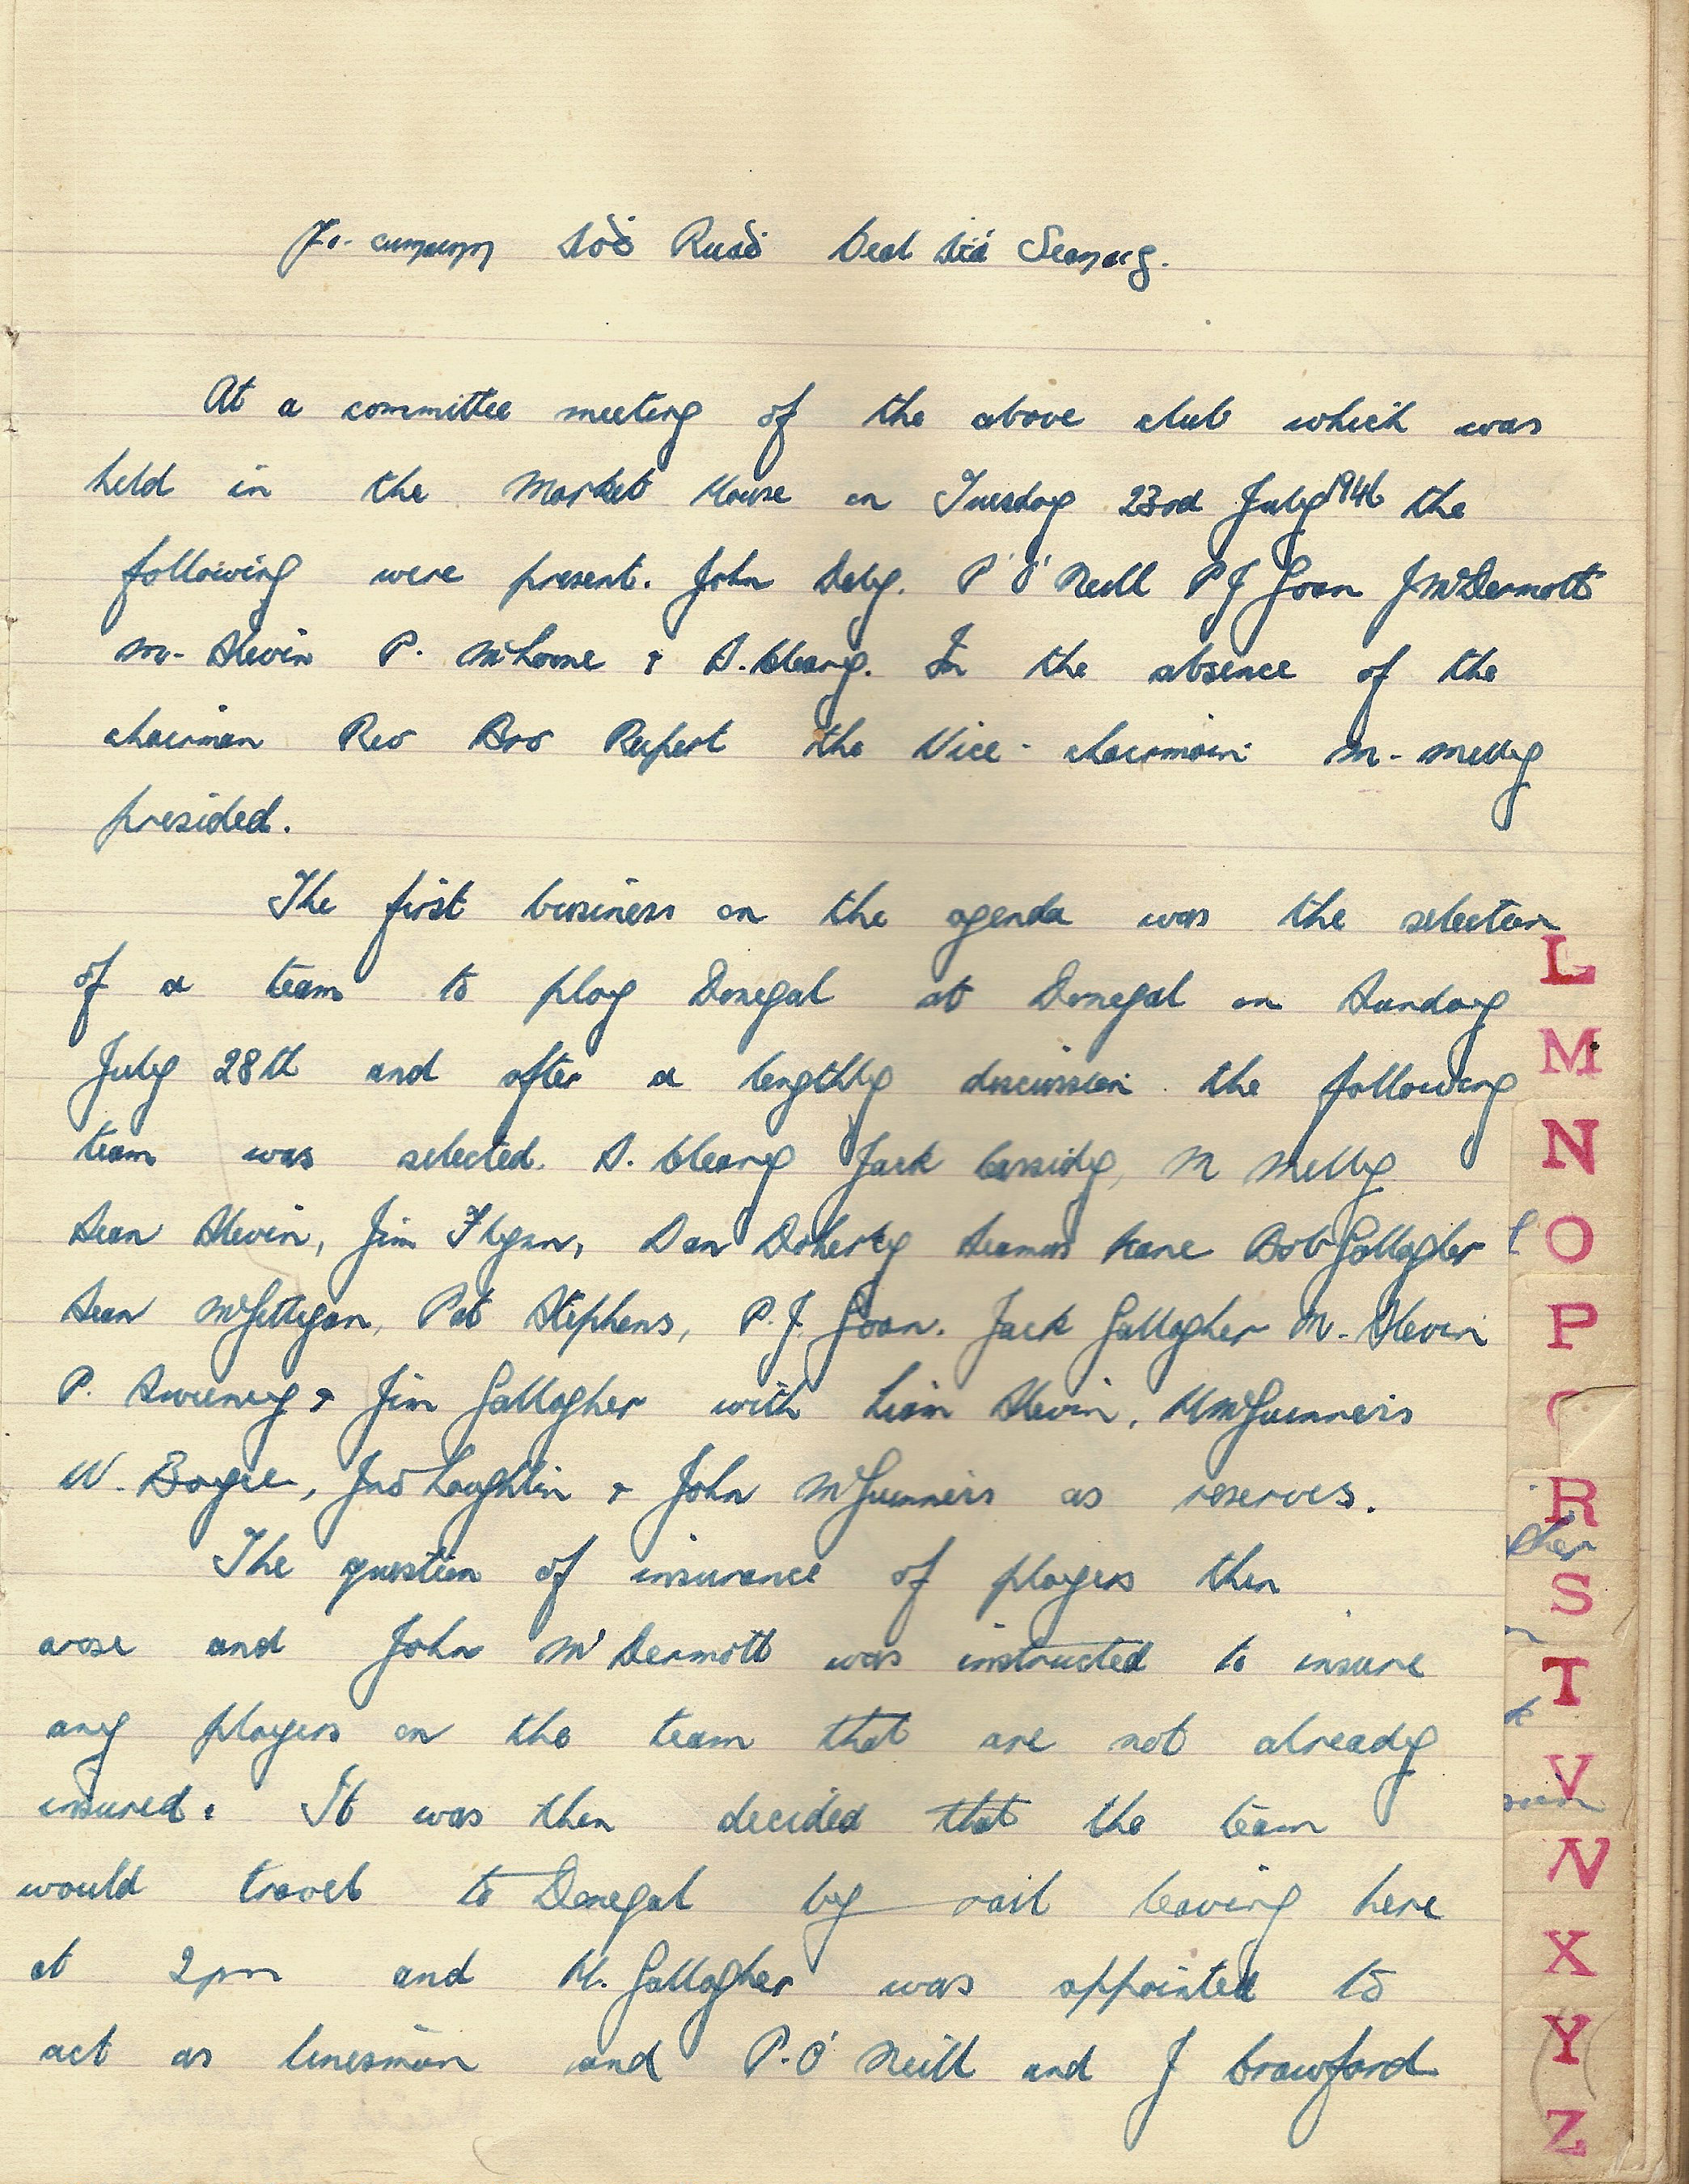 Aoḋ Ruaḋ Beal
At a committee meeting of the above club which was
held in the Market House on Tuesday 23rd July 1946 the
following were present. John Daly. P O'Neill P J Goan J McDermott
M. Slevin P. McLoone & S. Cleary. In the absence of the
chairman Rev Bro Rupert the Vice-chairman M. Melly
presided.
The first business on the agenda was the selection
of a team to play Donegal at Donegal on Sunday
July 28th and after a lengthly discussion the following
team was selected. S. Cleary Jack Cassidy, M Melly
Sean Slevin, Jim Flynn, Dan Doherty Seamus Kane Bob Gallagher
Sean McGettigan, Pat Stephens, P.J. Goan. Jack Gallagher M. Slevin
P. Sweeney & Jim Gallagher with Liam Slevin, McGuinness
W. Boyce, Loughlin & John McGuinness as reserves.
The question of insurance of players then
arose and John McDermott was instructed to insure
any players on the team that are not already
insured. It was then decided that the team
would travel to Donegal by rail leaving here
at 2pm and Gallagher was appointed to
act as linesman and P. O'Neill and J Crawford
L
M
N
O
P
R
S
T
V
X
Y
Z